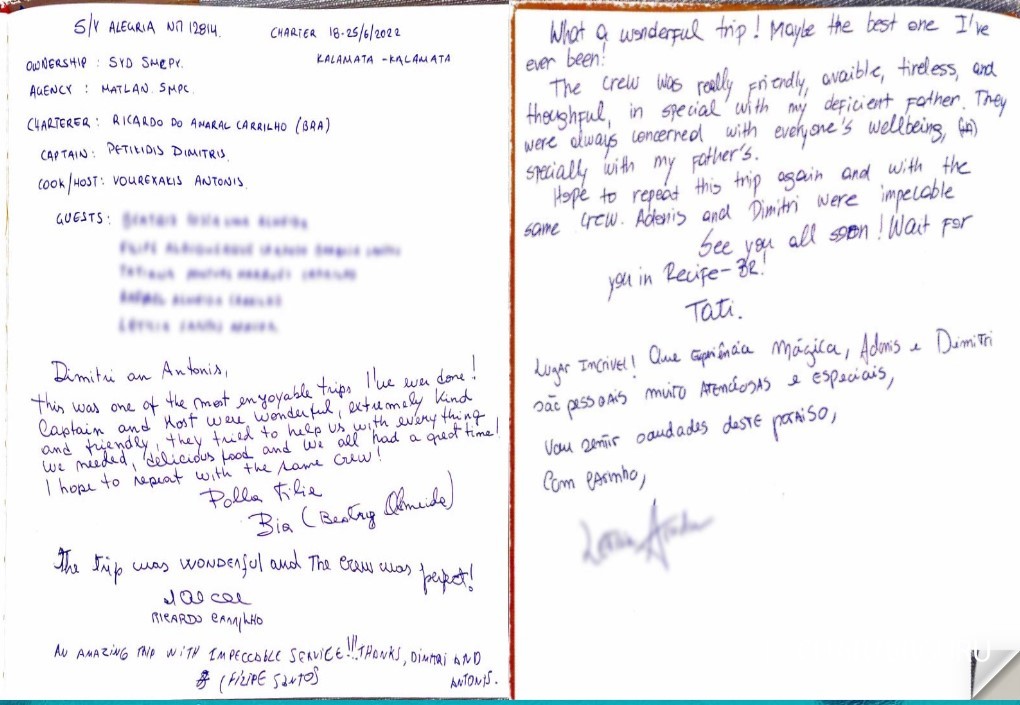 S/Y ALEGRIA NΠ 12814.
CHARTER 18-25/6/2022
KALAMATA - KALAMATA
OWNERSHIP : SYD SMCPY.
AGENCY : MATLAN. SMPC.
CHARTERER : RICARDO DO AMARAL CARRILHO (BRA)
CAPTAIN : PETIKIDIS DIMITRIS.
COOK/HOST: VOUREXAKIS ANTONIS.
GUESTS :
Dimitri an Antonis,
this was one of the most enjoyable trips I've ever done!
Captain and Host were wonderful, extremely kind
and friendly, they tried to help us with everything
we needed, delicious food and we all had a great time!
I hope to repeat with the same crew!
Polla Filia
Bia (Beatriz Almeida)
The trip was WONDERFUL and The crew was perfect!
RICARDO CARRILHO
AN AMAZING TRIP WITH IMPECCABLE SERVICE!!! THANKS, DIMITRI AND
ANTONIS.
(FILIPE SANTOS
What a wonderful trip! Maybe the best one I've
ever been!
The crew was really friendly, avaible, tireless, and
thoughful, in special with my deficient father. They
were always concerned with everyone's wellbeing,
specially with my father's.
Hope to repeat this trip again and with the
same crew. Adonis and Dimitri were impecable
See you all soon! Wait for
you in Recife - BR!
Tati.
LUGAR INCRÍVEL! Que Experiência Mágica, Adonis e Dimitri
são pessoais muito ATENCIOSAS e ESPECIAIS,
Vou sentir saudades deste paraiso,
Com carinho,